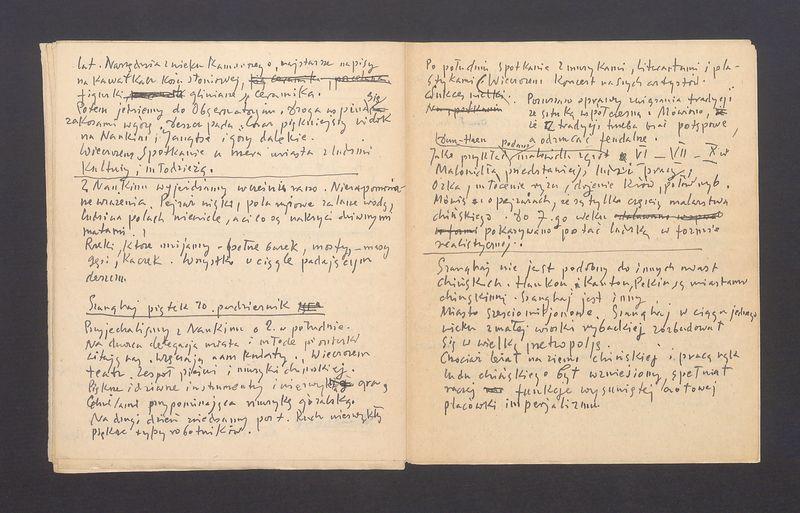 lat. Narzędzia z wieku Kamiennego, najstarsze napisy
na kawałkach kości słoniowej,
figurki, gliniane, ceramika.
Potem jedziemy do Obserwatorium, droga wspina się
zakosami w górę, deszcz pada. Coraz piękniejszy widok
na Nankin i Jangtse i góry dalekie.
Wieczorem spotkanie u mera miasta z ludźmi
kultury i młodzieżą.
Z Nankinu wyjeżdżamy wcześnie rano. Niezapomnia-
ne wrażenia. Pejzaż niski, pola ryżowe zalane wodą,
ludzi na polach niewiele, a ci co są nakryci dziwnymi
matami.
Rzeki, które mijamy - pełne barek, mosty, - mosty
gęsi, kaczek. Wszystko w ciągle padającym
deszczu.
Szanghaj piątek 10. październik
Przyjechaliśmy z Nankinu o 2. w południe.
Na dworcu delegacja miasta i młode pionierki
witają nas, wręczają nam kwiaty. Wieczorem
teatr. Zespół pieśni i muzyki chińskiej.
Piękne i dziwne instrumenty i niezwykłą grą
Chwilami przypominająca muzykę góralską.
Na drugi dzień zwiedzamy port. Ruch niezwykły
piękne typy robotników.
Po południu spotkanie z muzykami, literatami i pla-
stykami. Wieczorem koncert naszych artystów.
Poruszono sprawy związania tradycji
ze sztuką współczesną. Mówiono,
że z tradycji trzeba brać postępowe,
a odrzucać feudalne.
Jako przykład podano malowidła grot VI – VII – X w
Malowidła przedstawiają ludzi pracy,
Orka, młocenie ryżu, dojenie krów, połów ryb.
Mówią o pejzażach, że są tylko częścią malarstwa
chińskiego. Do 7-go wieku
pokazywano postać ludzką w formie
realistycznej.
Szanghaj nie jest podobny do innych miast
chińskich. Hankou, Kanton, Pekin, są miastami
chińskimi. Szanghaj jest inny.
Miasto sześciomilionowe. Szanghaj w ciągu jednego
wieku z małej wioski rybackiej rozbudował
się w wielką metropolię.
Chociaż leżał na ziemi chińskiej i pracą rąk
ludu chińskiego był wzniesiony, spełniał
raczej funkcję wysuniętej bazowej
placówki imperializmu.